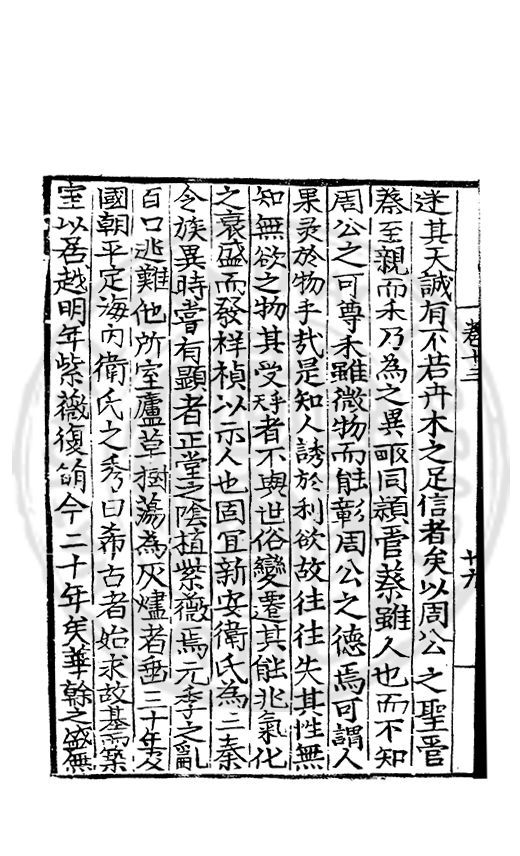 迷其天誠有不若卉木之足信者矣以周公之聖管
蔡至親而禾乃為之異畝同穎管蔡雖人也而不知
周公之可尊禾雖微物而能彰周公之德焉可謂人
果灵於物乎哉是知人誘於利欲故往往失其性無
知無欲之物其受天者不與世俗變遷其能兆氣化
之衰盛而發祥禎以示人也固宜新安衛氏為三秦
令族異時嘗有顯者正堂之陰植紫薇焉元季之亂
百口逃難他所室廬草樹蕩為灰燼者幽三十年及
國朝平定海內衛氏之秀曰希古者始求故基而築
室以居越明年紫薇復萌今二十年矣華榦之盛無
卷十三
廿九